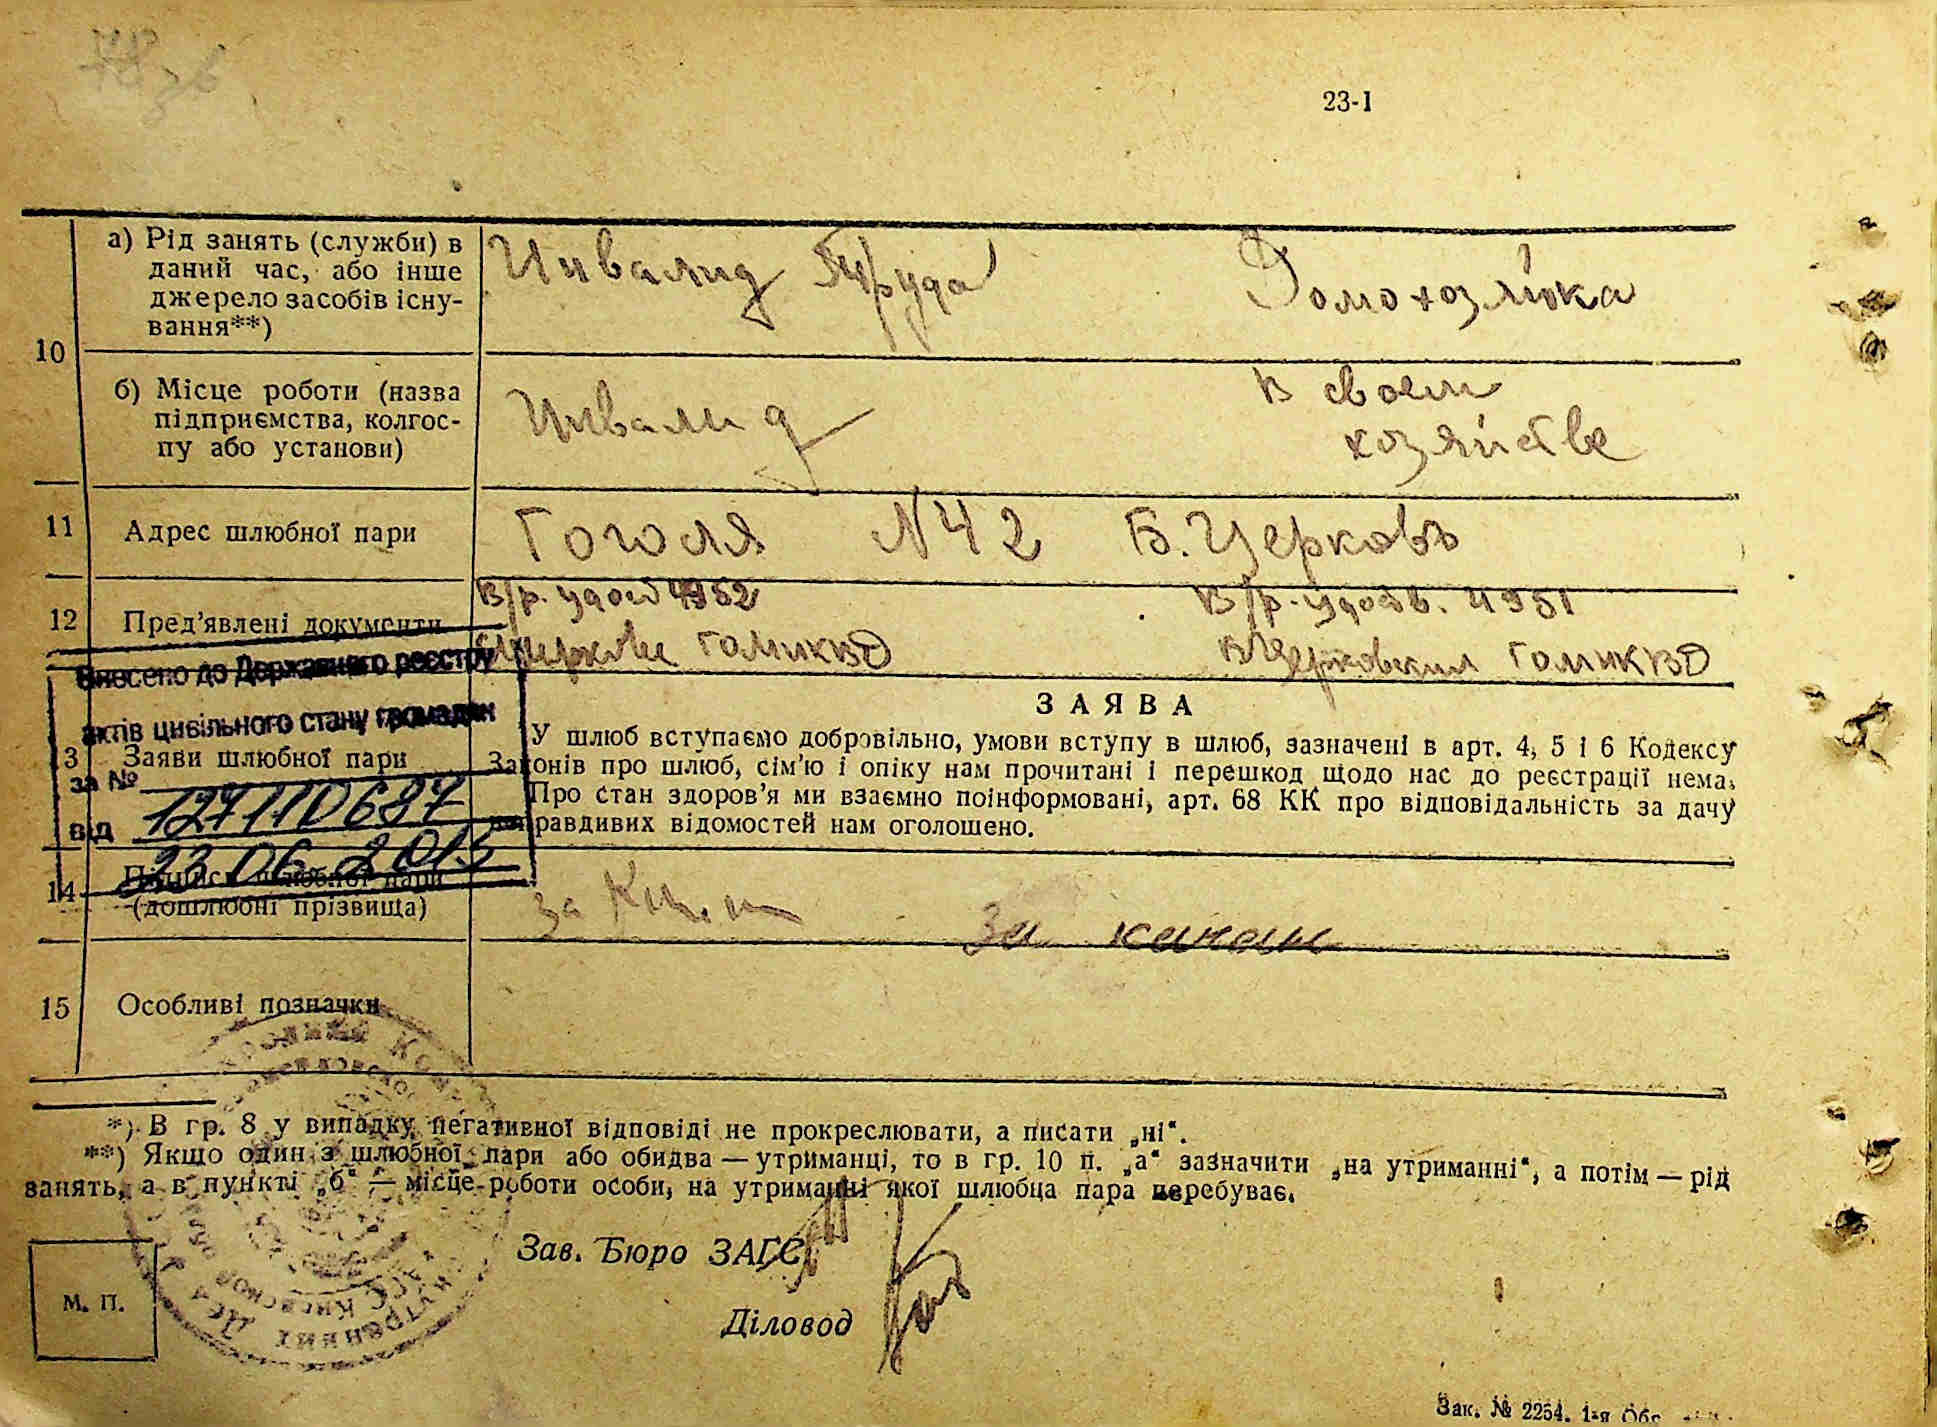 23-1
10
а) Рід занять (служби) в
даний час, або інше
джерело засобів існу-
вання**)
Инвалид труда
Домохозяйка
б) Місце роботи (назва
підприємства, колгос-
пу або установи)
Инвалид
в своем
хозяйстве
11
Адрес шлюбної пари
Гоголя №42 Б. Церковь
12
Пред’явлені документи
В/р. удост.
В/р. удостов. 4951
БЦерковский ГОМИКВД
Внесено до Державного реєстру
актів цивільного стану громадян
за № 127110687
від 23.06.2015
13
Заяви шлюбної пари
ЗАЯВА
У шлюб вступаємо добровільно, умови вступу в шлюб, зазначені в арт. 4, 5 і 6 Кодексу
Законів про шлюб, сім’ю і опіку нам прочитані і перешкод щодо нас до реєстрації нема.
Про стан здоров’я ми взаємно поінформовані, арт. 68 КК про відповідальність за дачу
неправдивих відомостей нам оголошено.
14
Підписи шлюбної пари
(дошлюбні прізвища)
за
За
15
Особливі позначки
*) В гр. 8 у випадку негативної відповіді не прокреслювати, а писати „ні“.
**) Якщо один з шлюбної пари або обидва — утриманці, то в гр. 10 п. „а“ зазначити „на утриманні“, а потім — рід
занять, а в пункті „б“ — місце роботи особи, на утриманні якої шлюбца пара перебуває.
Зав. Бюро ЗАГС
Діловод
М. П.
Зак. № 2254. 1-я